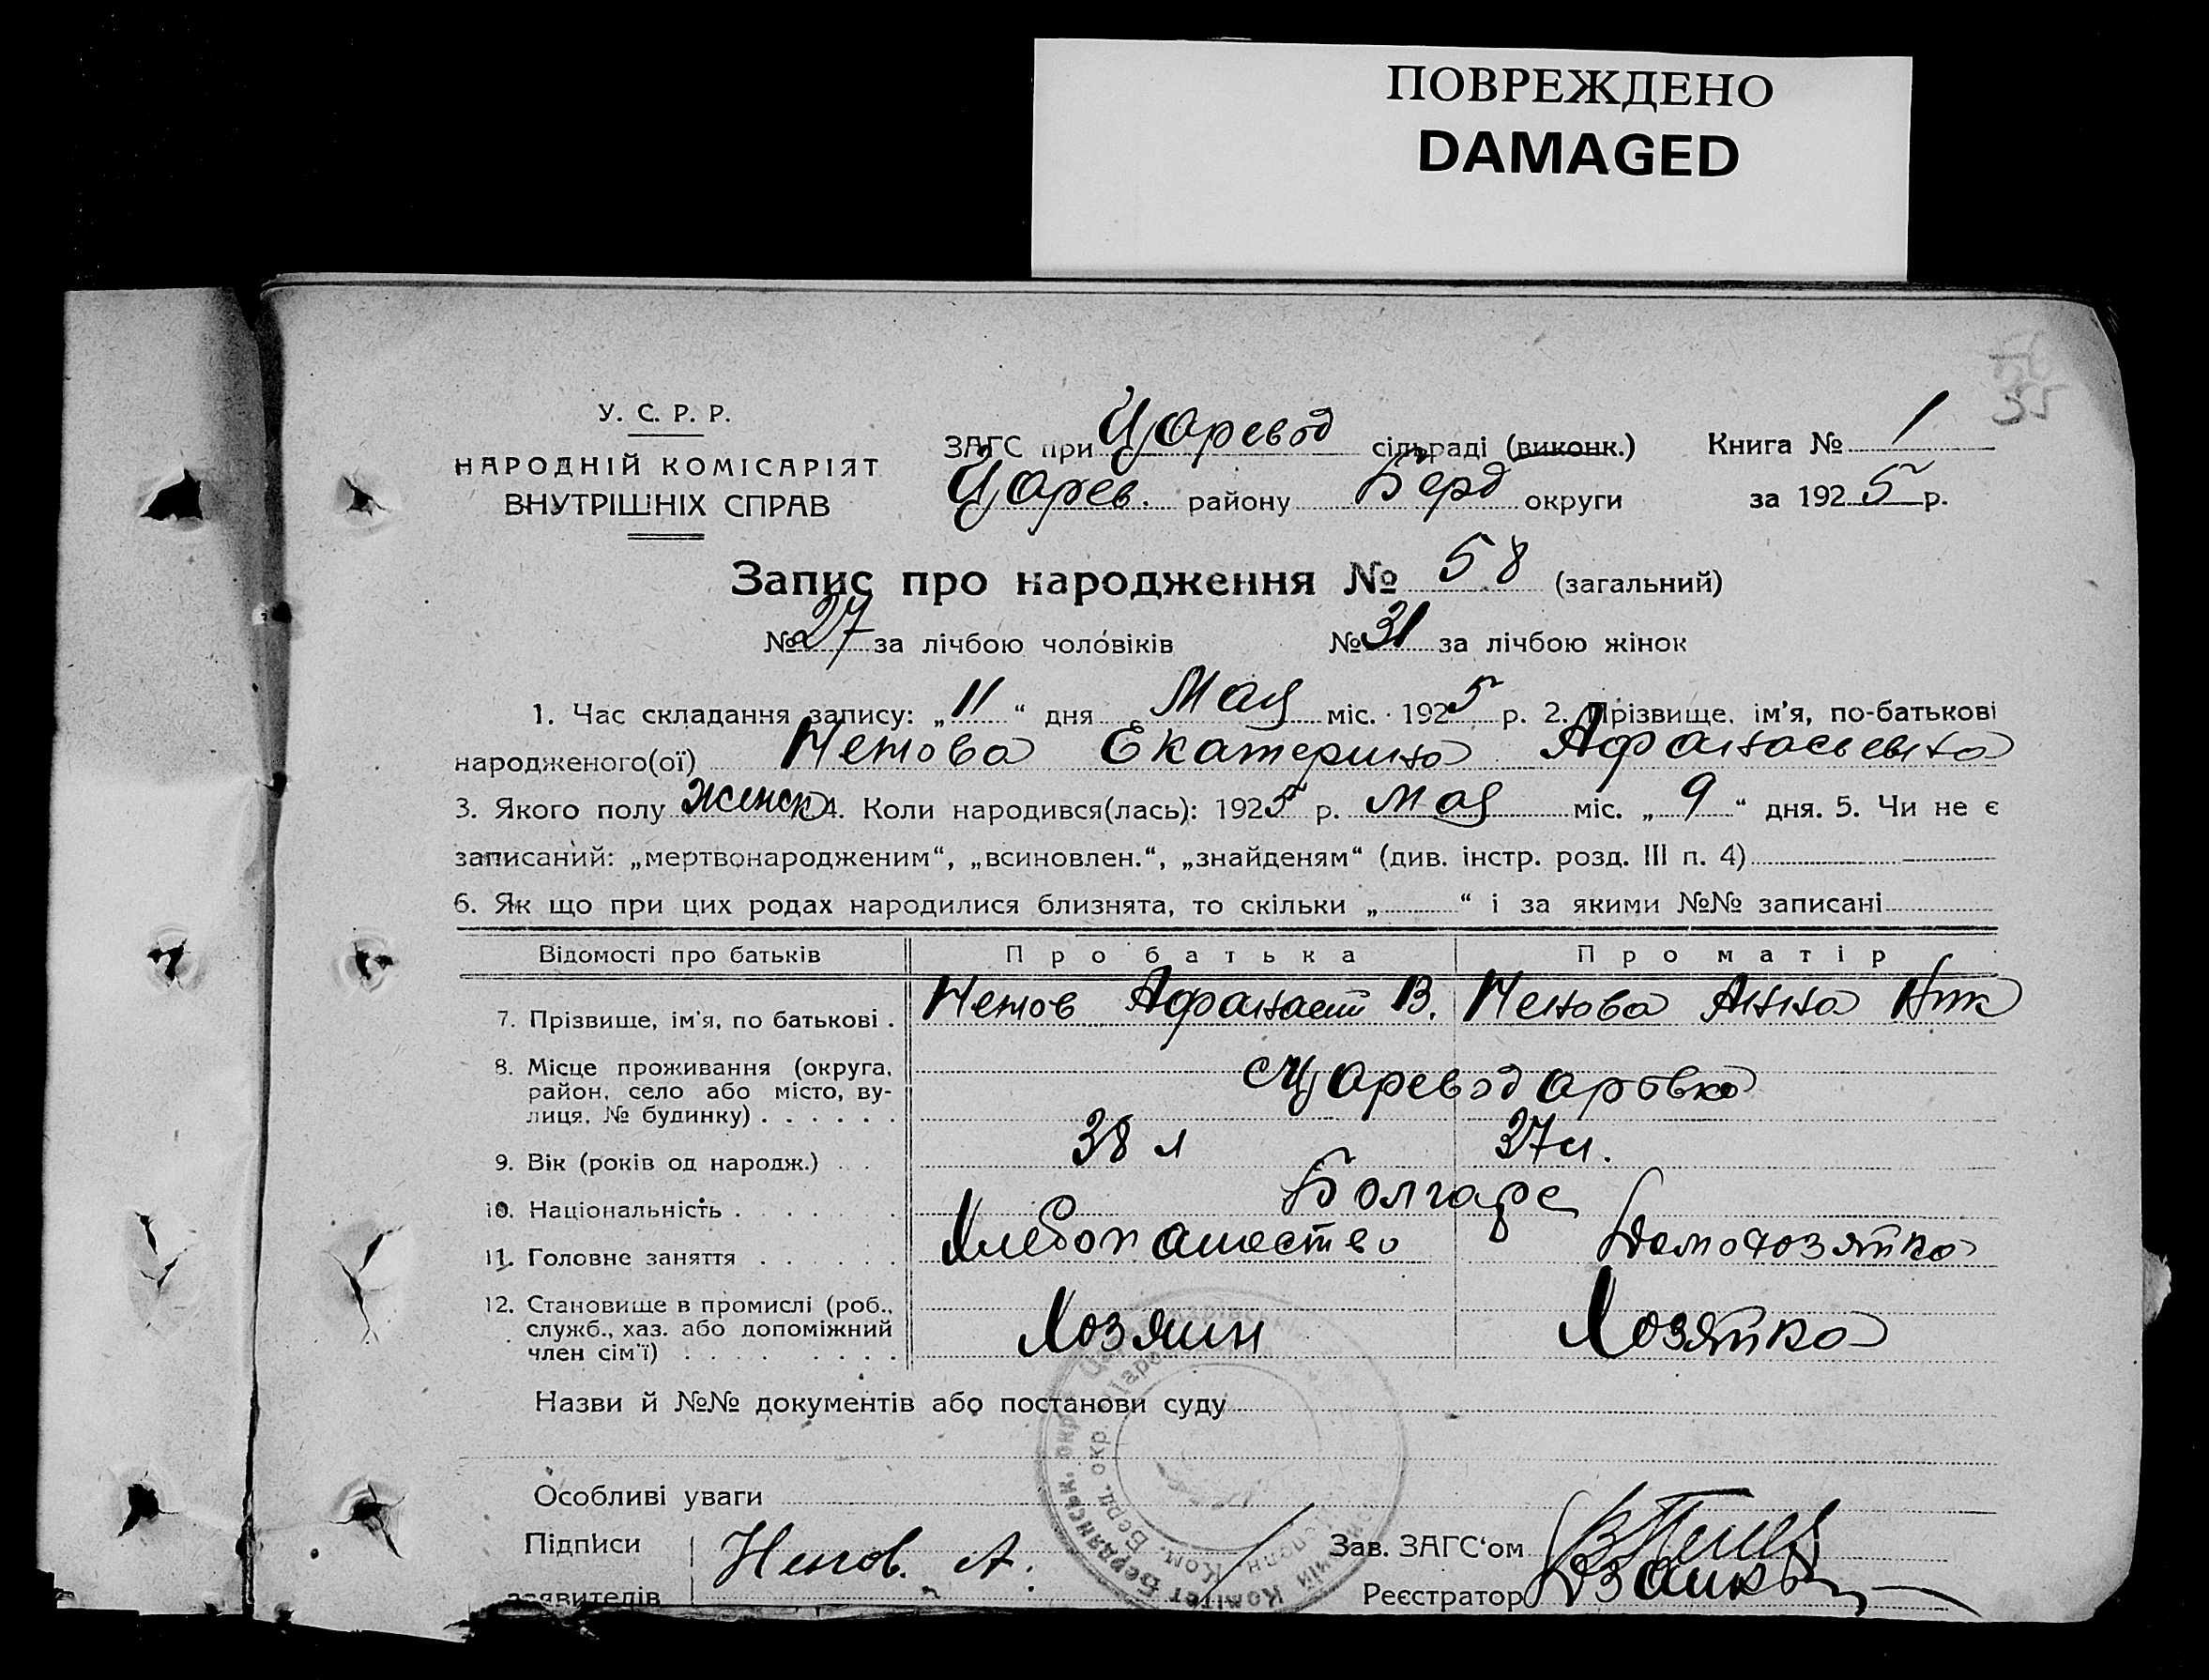 ПОВРЕЖДЕНО
DAMAGED
35
У. С. Р. Р.
НАРОДНІЙ КОМІСАРІЯТ
ВНУТРІШНІХ СПРАВ
ЗАГС при Царевод сільраді (виконк.) Книга № 1
Царев. району Берд округи за 1925 р.
Запис про народження № 58 (загальний)
№ 27 за лічбою чоловіків № 31 за лічбою жінок
1. Час складання запису: „11“ дня Мая міс. 1925 р. 2. Прізвище, ім'я, по-батькові
народженого(ої) Ненова Екатерина Афанасьевна
3. Якого полу женск 4. Коли народився(лась): 1925 р. мая міс. „9“ дня. 5. Чи не є
записаний: „мертвонародженим“, „всиновлен.“, „знайденям“ (див. інстр. розд. III п. 4)
6. Як що при цих родах народилися близнята, то скільки „ “ і за якими №№ записані
Відомості про батьків Про батька Про матір
7. Прізвище, ім'я, по батькові . Ненов Афанасий В. Ненова Анна Ник
8. Місце проживання (округа, район, село або місто, ву-
лиця, № будинку) . . . . . . с Цареводаровка
9. Вік (років од народж.) . . 38 л 37 л.
10. Національність . . . . . . . Болгаре
11. Головне заняття . . . . . . Хлебопашество Домохозяйка
12. Становище в промислі (роб.,
служб., хаз. або допоміжний
член сім'ї) . . . . . . . . . Хозяин Хозяйка
Назви й №№ документів або постанови суду
Особливі уваги
Підписи
заявителів Ненов. А.
Зав. ЗАГС'ом
Реєстратор